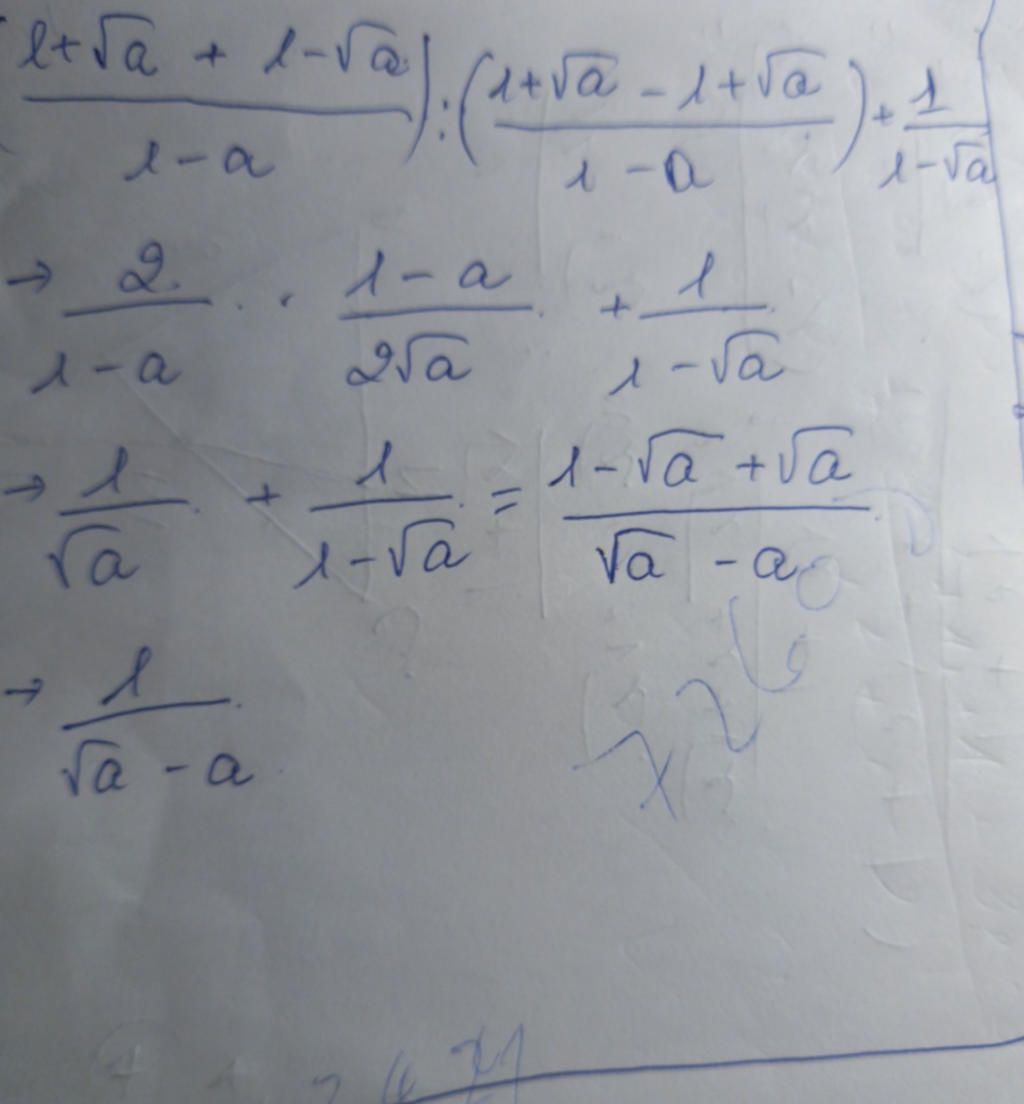 (1+√a + 1-√a)/(1-a)) : ((1+√a - 1+√a)/(1-a)) + 1/(1-√a)
→ 2/(1-a) · (1-a)/(2√a) + 1/(1-√a)
→ 1/√a + 1/(1-√a) = (1-√a +√a)/(√a - a)
→ 1/(√a - a)